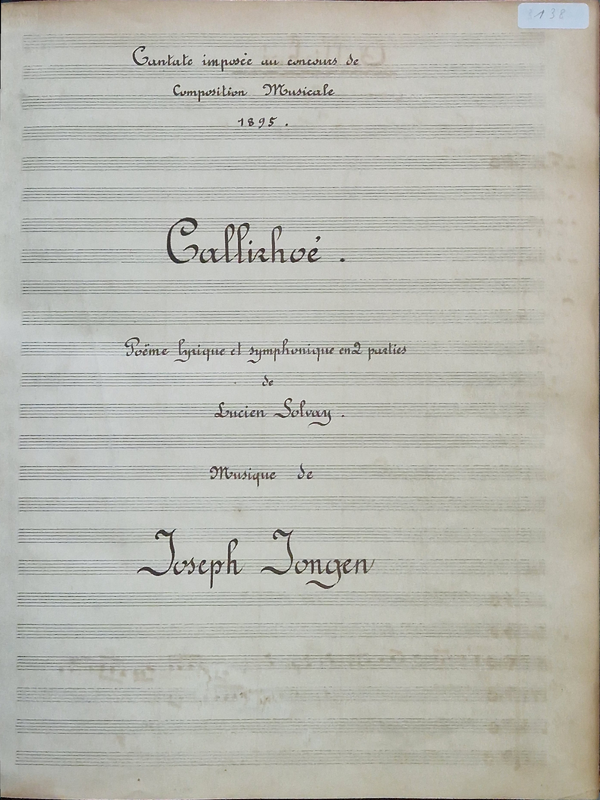 3138
Cantate imposée au concours de
Composition Musicale
1895.
Callirhoé.
Poëme lyrique et symphonique en 2 parties
de
Lucien Solvay.
Musique de
Joseph Jongen